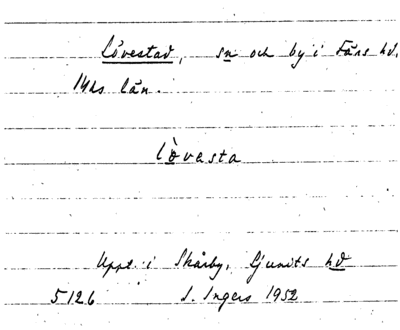 Lövestad, sn och by i Färs hd,
Mhs län.
lòvesta
Uppt. i Skårby, Ljunits hd
5126 I. Ingers 1952